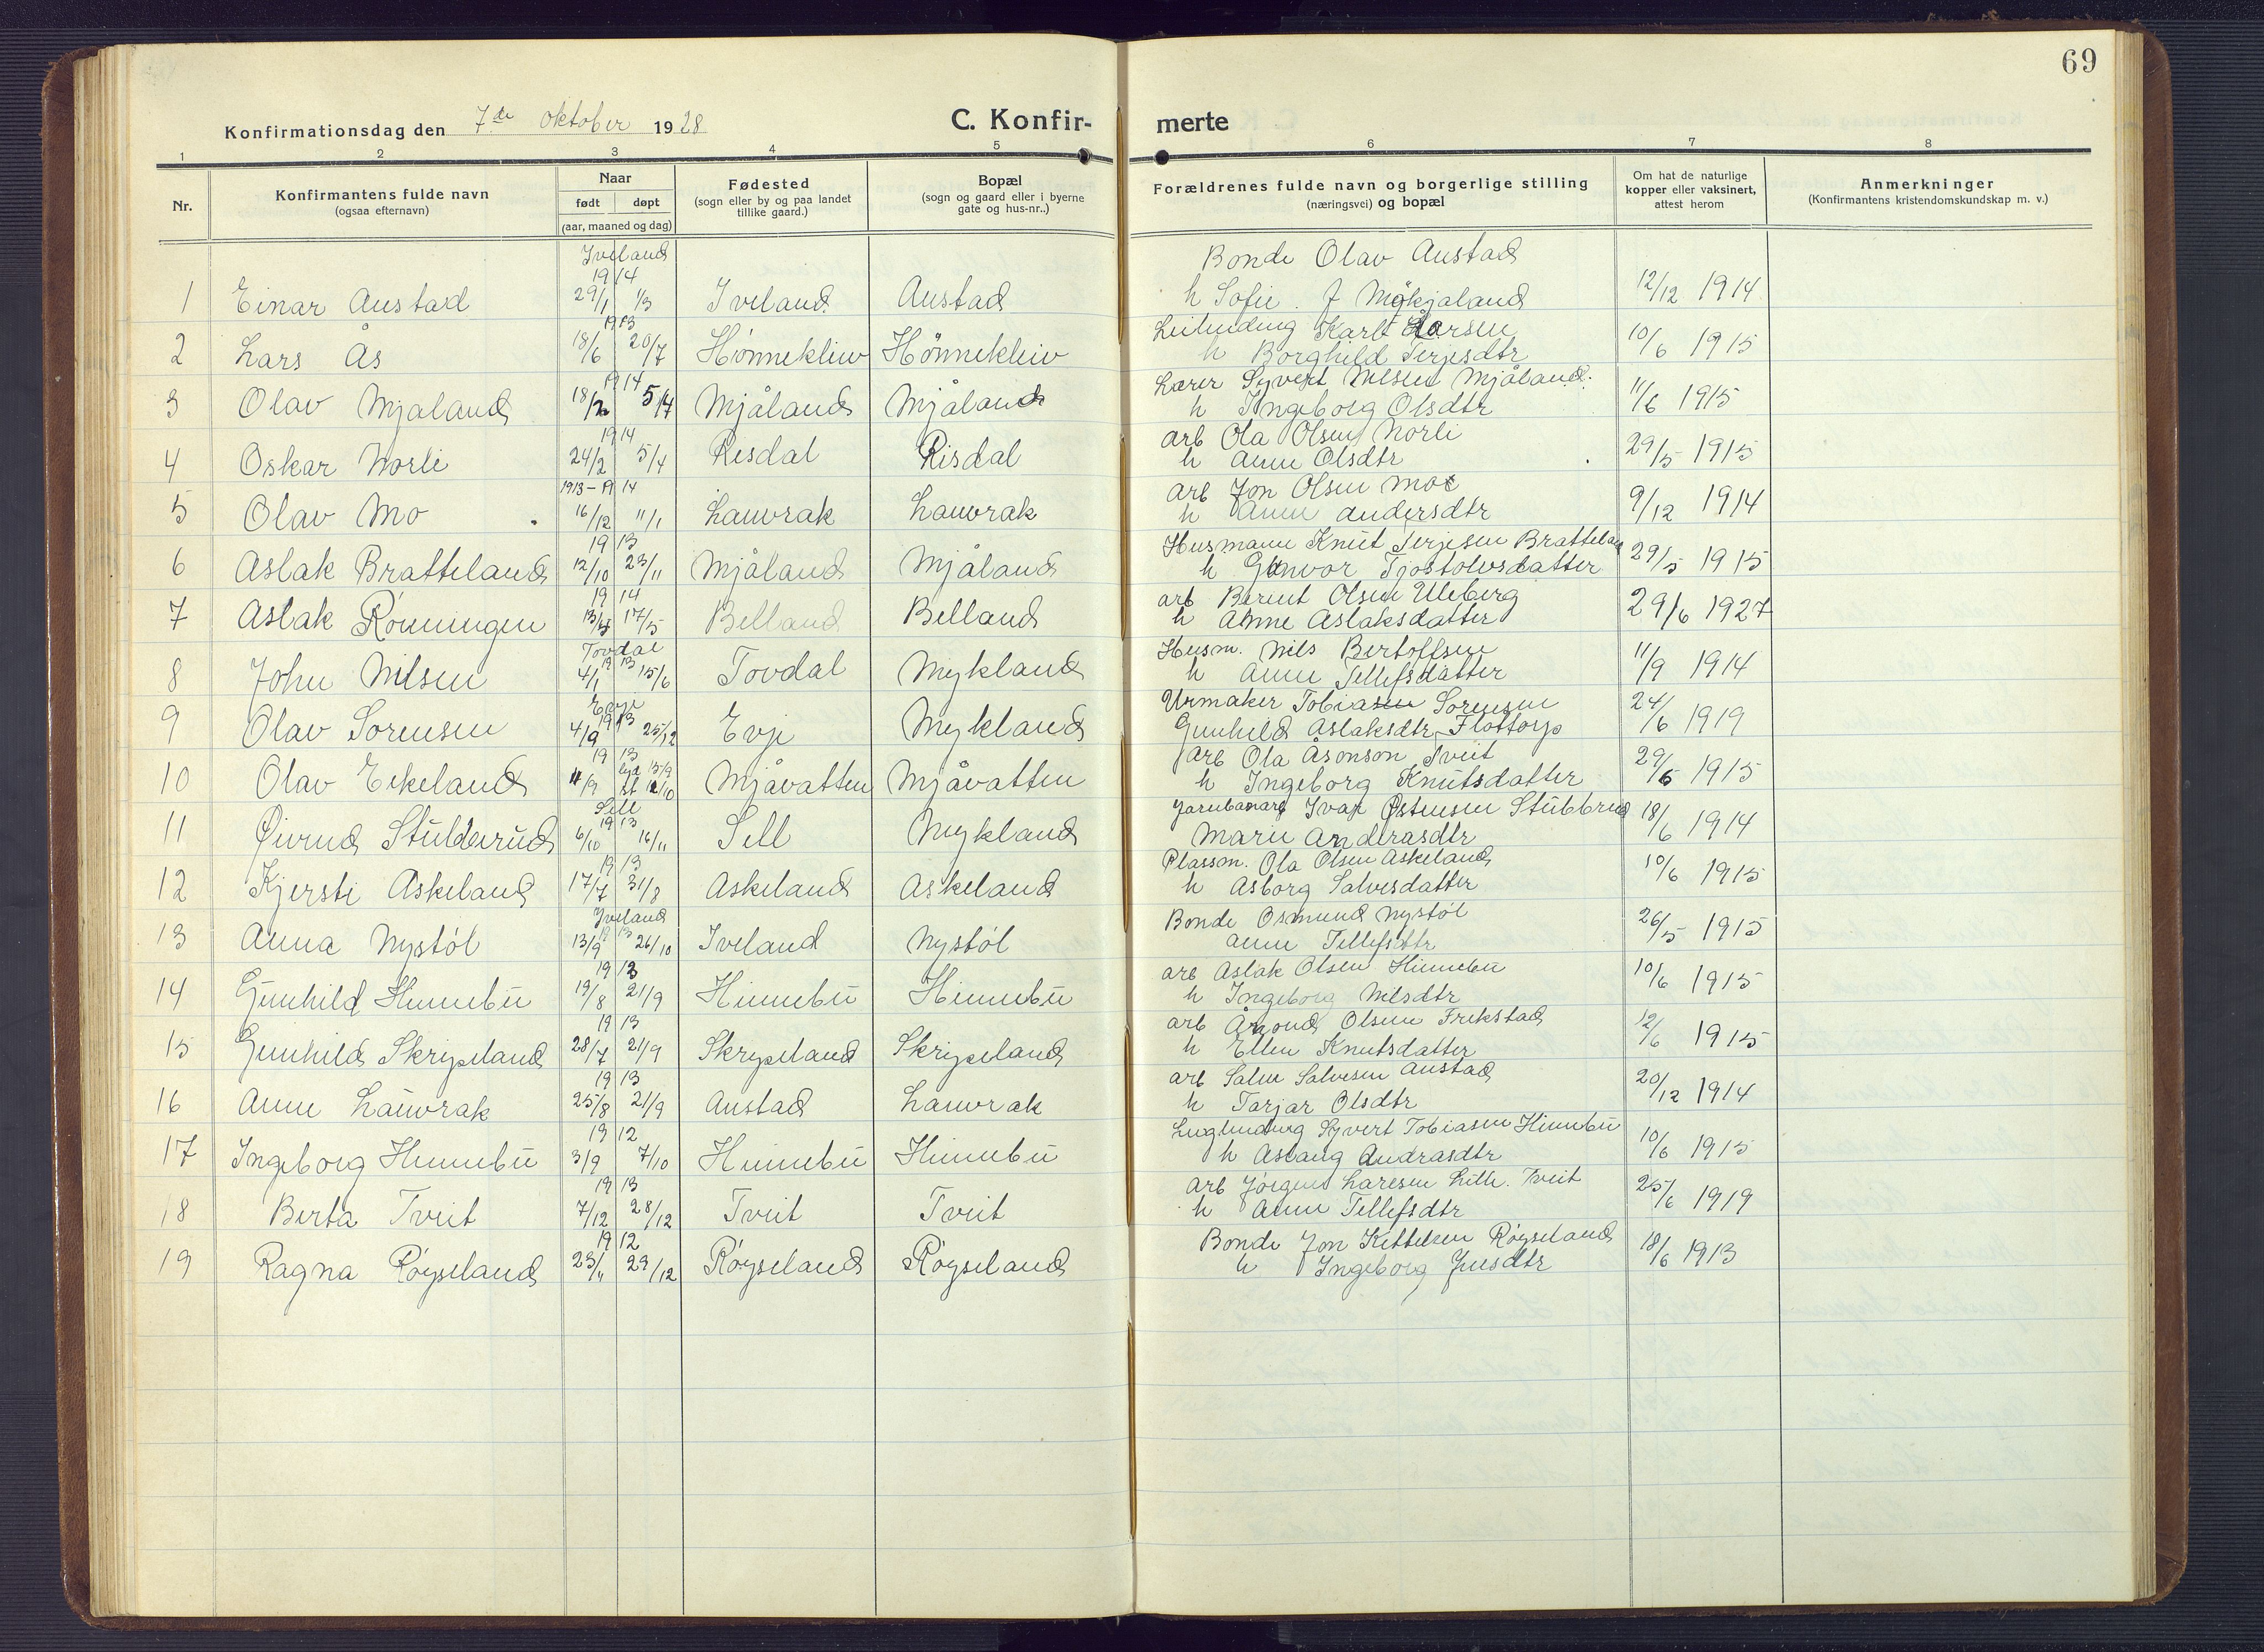 69
Konfirmationsdag den 7de oktober 1928
C. Konfir- merte
1 2 3 4 5 6 7 8
Nr.
Konfirmantens fulde navn
(ogsaa efternavn)
Naar
født døpt
(aar, maaned og dag)
Fødested
(sogn eller by og paa landet
tillike gaard.)
Bopæl
(sogn og gaard eller i byerne
gate og hus-nr..)
Forældrenes fulde navn og borgerlige stilling
(næringsvei) og bopæl
Om hat de naturlige
kopper eller vaksinert,
attest herom
Anmerkninger
(Konfirmantens kristendomskundskap m. v.)
Iveland
1914 Bonde Olav Austad
1 Einar Austad 29/1 1/3 Iveland Austad h Sofie f Møkjaland 12/12 1914
1913 Leilending Karl Larsen
2 Lars Ås 18/6 20/7 Hønnekleiv Hønnekleiv h Borghild Terjesdtr 10/6 1915
1914 Lærer Syvert Nilsen Mjåland.
3 Olav Mjaland 18/2 5/4 Mjåland Mjåland h Ingeborg Olsdtr 11/6 1915
1914 arb Ola Olsen Norli
4 Oskar Norli 24/2 5/4 Risdal Risdal h Anne Olsdtr 29/5 1915
1913 - 1914 arb Jon Olsen Mo
5 Olav Mo 16/12 11/1 Lauvrak Lauvrak h Anne Andersdtr 9/12 1914
1913 Husmann Knut Terjesen Bratteland
6 Aslak Bratteland 12/10 23/11 Mjåland Mjåland h Gunvor Tjostolvsdatter 29/5 1915
1914 arb Berent Olsen Uleberg
7 Aslak Rønningen 13/4 17/5 Belland Belland h Anne Aslaksdatter 29/6 1927
Tovdal
1913 Husm. Nils Bertoffsen
8 John Nilsen 4/1 15/6 Tovdal Mykland h Anne Tellefsdatter 11/9 1914
Evje
1913 Urmaker Tobiasen Sorensen
9 Olav Sorensen 4/9 25/12 Evje Mykland Gunhild Aslaksdtr Flottorp 24/6 1919
1913 arb Ola Åsonson Tveit
10 Olav Eikeland 4/9 15/9 12/10 Mjåvatten Mjåvatten h Ingeborg Knutsdatter 29/6 1915
Sell
1913 Jarnbanarb Ivar Østensen Stubberud
11 Øivind Stubberud 6/10 16/11 Sell Mykland Marie Anderasdtr 18/6 1914
1913 Plassm. Ola Olsen Askeland
12 Kjersti Askeland 17/7 31/8 Askeland Askeland h Asborg Salvesdatter 10/6 1915
Iveland
1913 Bonde Osmund Nystøl
13 Anna Nystøl 13/9 26/10 Iveland Nystøl Anne Tellefsdtr 26/5 1915
1913 arb Aslak Olsen Hinnebu
14 Gunhild Hinnebu 19/8 21/9 Hinnebu Hinnebu h Ingeborg Nilsdtr 10/6 1915
1913 arb Olsen Frikstad
15 Gunhild Skripeland 28/7 21/9 Skripeland Skripeland h Ellen Knutsdatter 12/6 1915
1913 arb Salve Salvesen Austad
16 Anne Lauvrak 25/8 21/9 Austad Lauvrak h Tarjar Olsdtr 20/12 1914
1912 Syvert Tobiasen Hinnebu
17 Ingeborg Hinnebu 3/9 7/10 Hinnebu Hinnebu h Aslaug Andrasdtr 10/6 1915
1913 arb Jørgen Laresen Litle. Tveit
18 Berta Tveit 7/12 28/12 Tveit Tveit h Anne Tellefsdtr 25/6 1919
1912 Bonde Jon Kettelsen Røyseland
19 Ragna Røyseland 23/11 29/12 Røyseland Røyseland h Ingeborg Jensdtr 18/6 1913